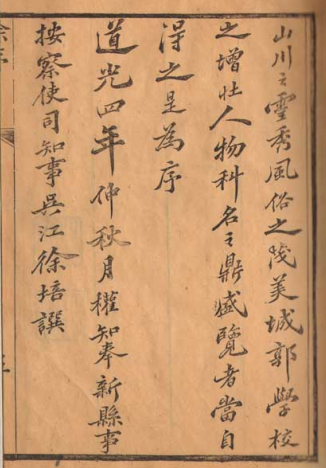 山川之靈秀風俗之淺美城郭學校
之增壯人物科名之鼎盛覽者當自
得之是為序
道光四年仲秋月權知奉新縣事
按察使司知事吳江徐培譔